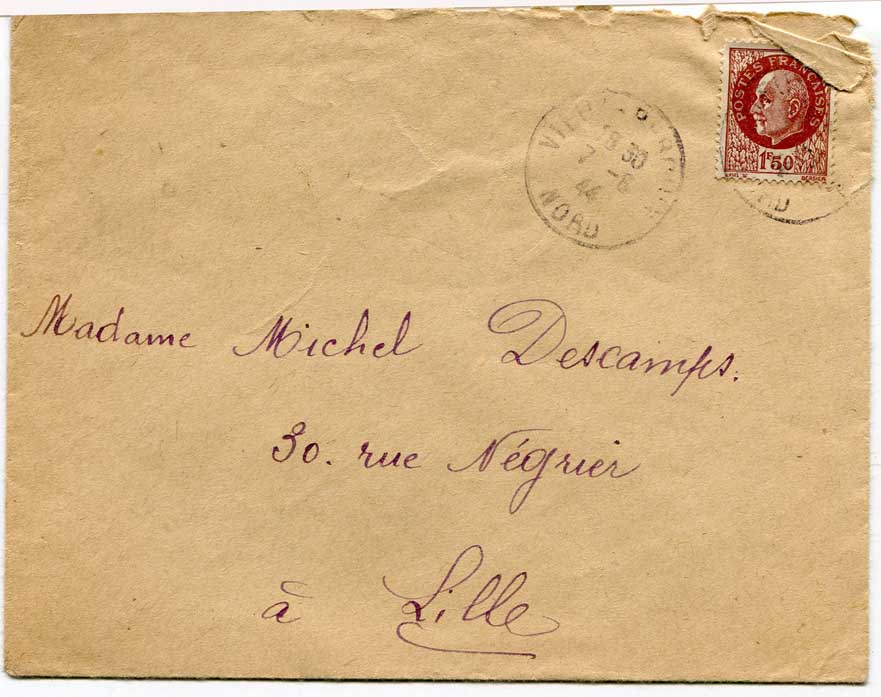 POSTES FRANÇAISES
1F50
18 30
7 -6
44
NORD
Madame Michel Descamps.
30. rue Négrier
à Lille